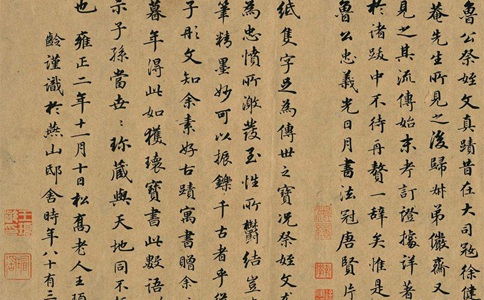 魯公祭姪文真蹟昔在大司寇徐健
菴先生所見之後歸弟儼齋又
見之其流傳始末考訂證據詳著
於諸跋中不待再贅一辭矣惟是
魯公忠義光日月書法冠唐賢片
紙隻字足為傳世之寶況祭姪文尤
為忠憤所激發至性所鬱結豈
筆精墨妙可以振鑠千古者乎
子彤文知余素好古蹟寓書贈余
暮年得此如獲瓌寶書此數語
示子孫當世〻珎藏與天地同不
也 雍正二年十一月十日松喬老人王頊
齡謹識於燕山邸舍時年八十有三